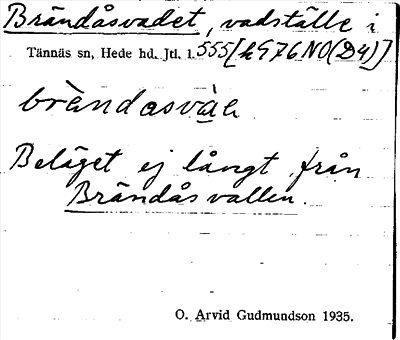 Brändåsvadet, vadställe i
Tännäs sn, Hede hd. Jtl. l. 555 [h976NO(D4)]
Beläget ej långt från
Brändåsvallen.
O. Arvid Gudmundson 1935.